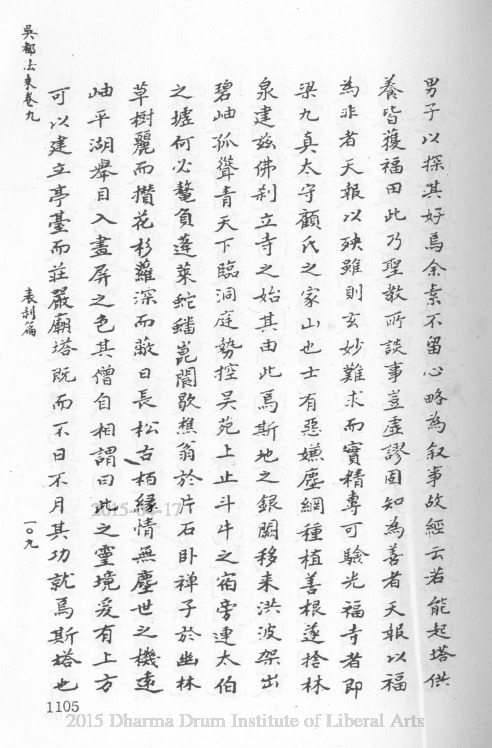 男子以探其好焉余素不留心略為叙事故經云若能起塔供
養皆獲福田此乃聖教所談事豈虛謬固知為善者天報以福
為非者天報以殃雖則玄妙難求而實精專可驗光福寺者即
梁九真太守顧氏之家山也士有惡嫌塵網種植善根遂捨林
泉建茲佛刹立寺之始其由此焉斯地之銀闕移来洪波架出
碧岫孤聳青天下臨洞庭勢控吳苑上止斗牛之宿旁連太伯
之墟何必鼇負蓬萊蛇蟠崑閬歇樵翁於片石卧禅子於幽林
草樹麗而攢花杉蘿深而蔽日長松古栢緣情無塵世之機遠
岫平湖舉目入畫屏之色其僧自相謂曰此之靈境爰有上方
可以建立亭臺而莊嚴廟塔既而不日不月其功就焉斯塔也
吳都法乘卷九
表刹篇
一〇九
1105
2015-04-17
2015 Dharma Drum Institute of Liberal Arts